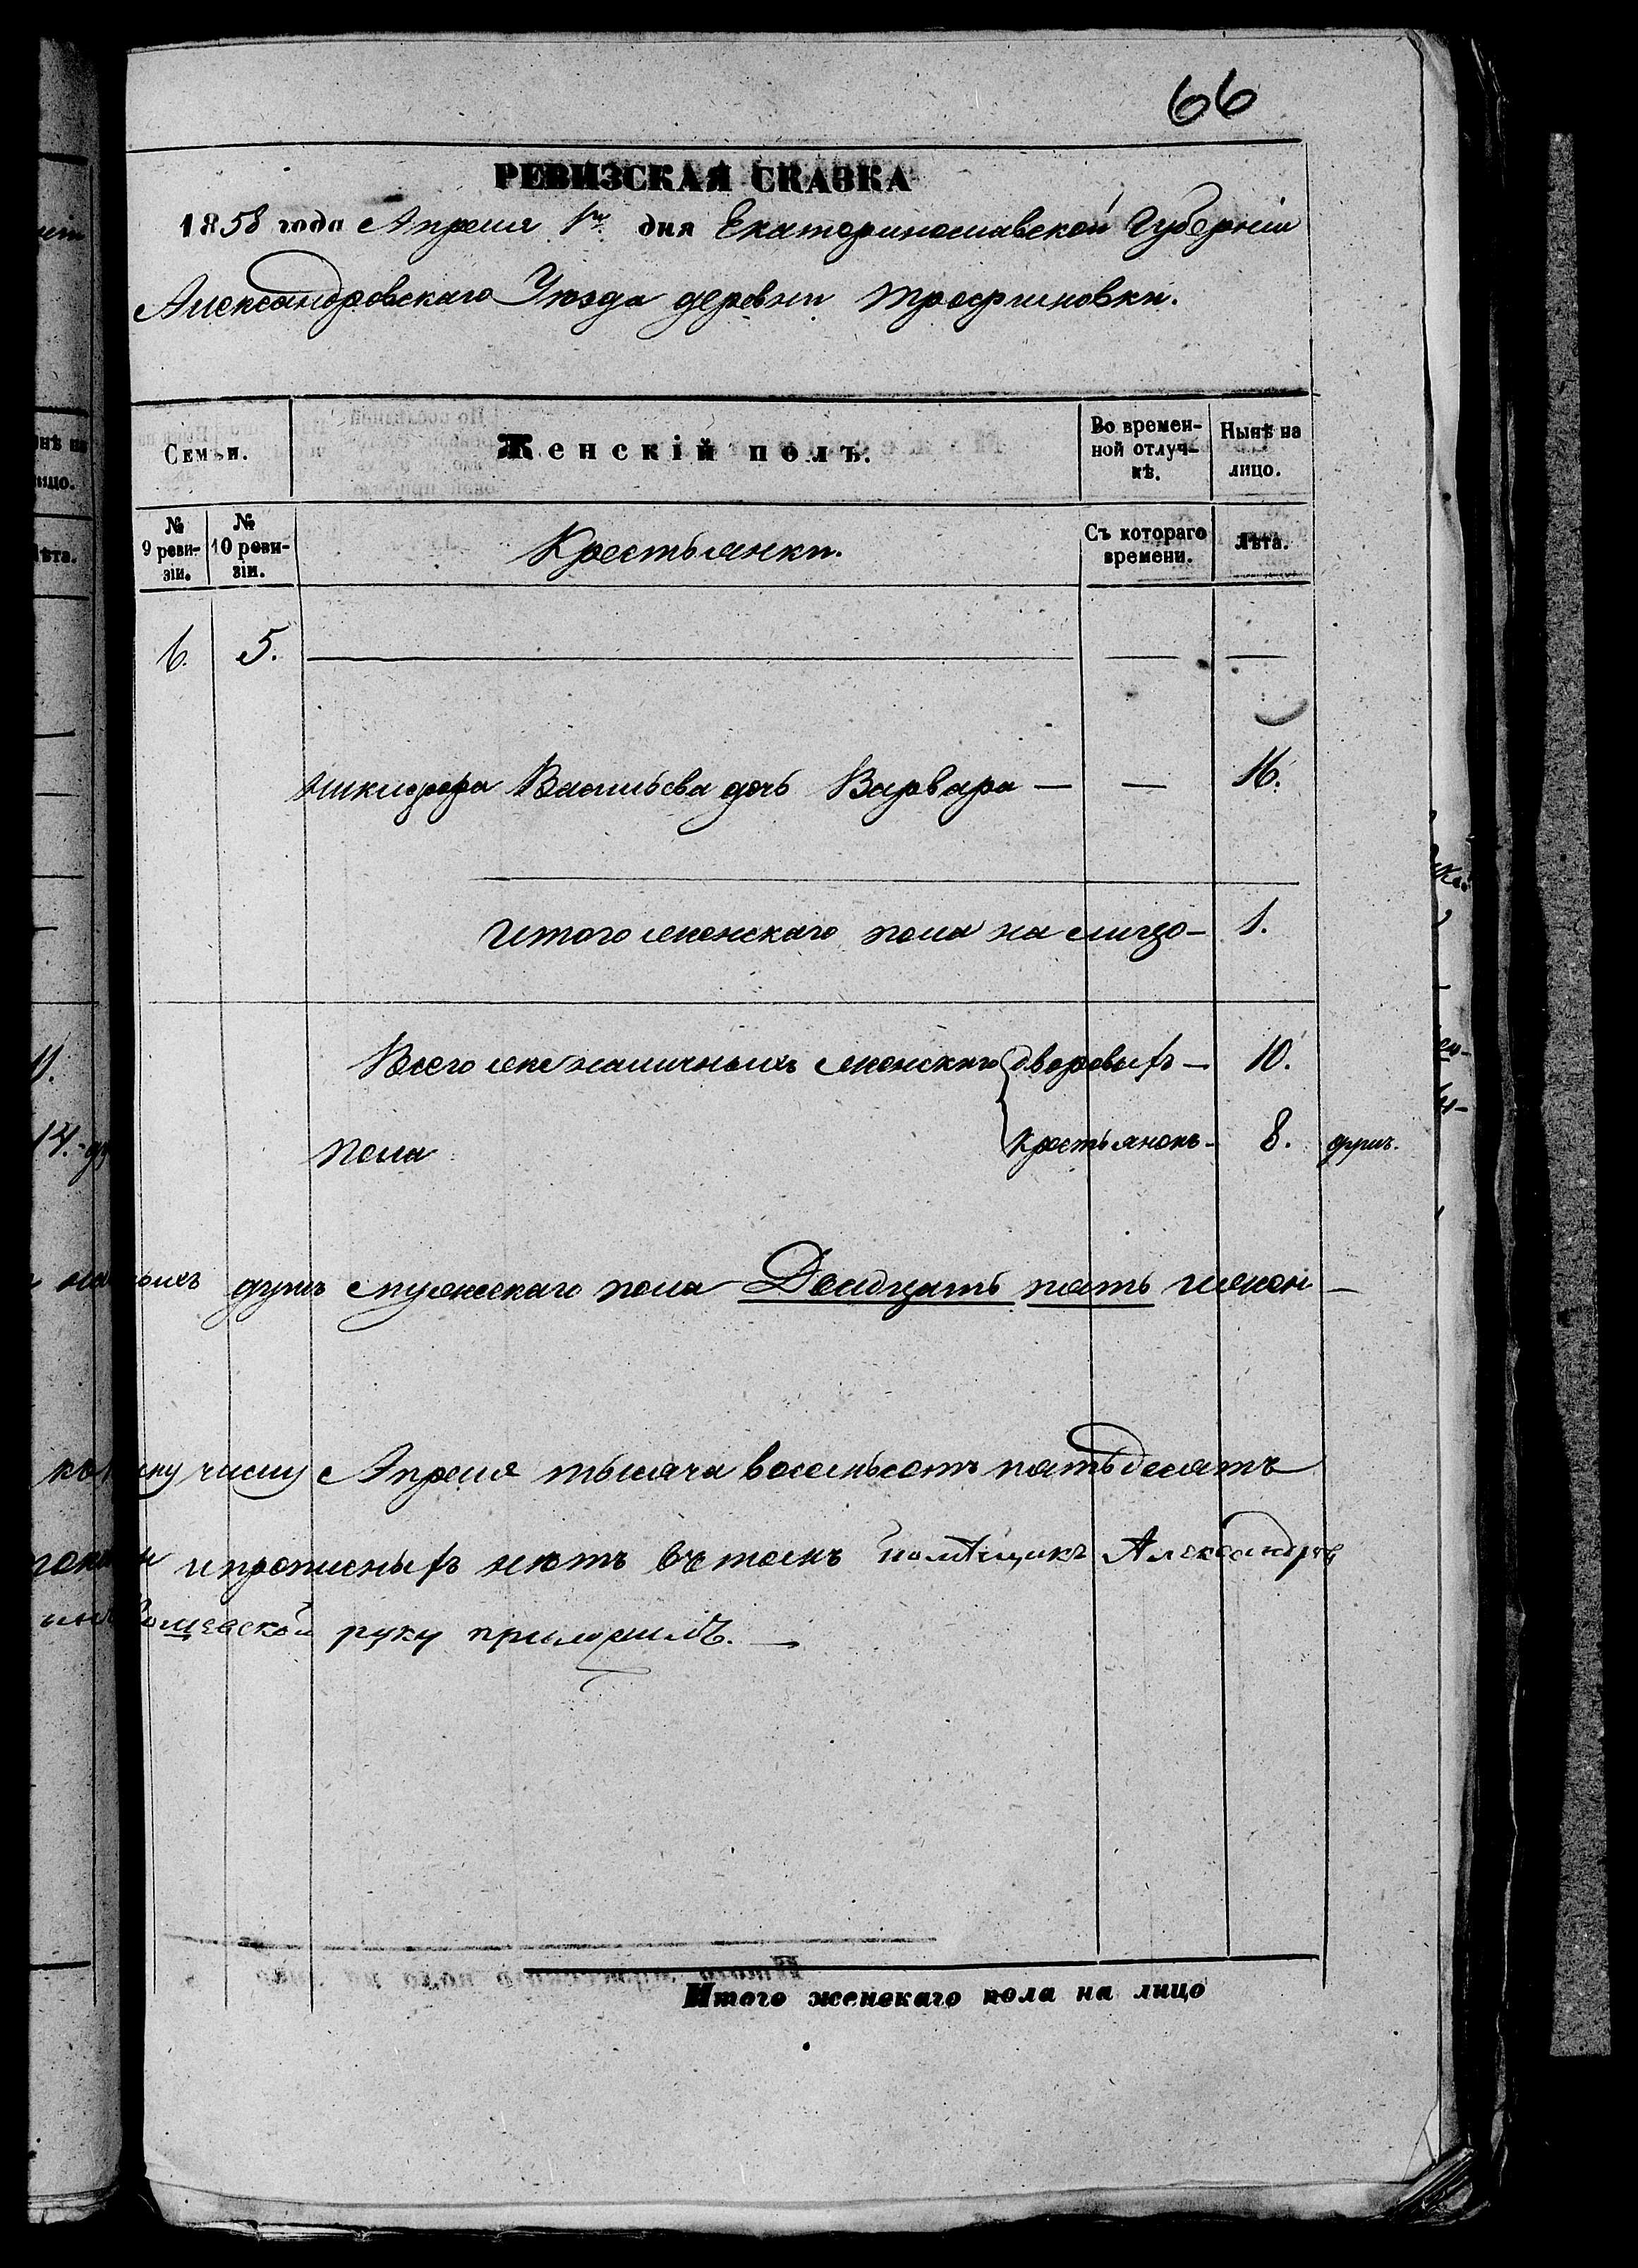 66
РЕВИЗСКАЯ СКАЗКА
1858 года Апреля 1го дня Екатеринославской Губерніи
Александровскаго Уѣзда деревни Трофимовки.
Семьи.
Женскій полъ.
Во времен-
ной отлуч-
кѣ.
Нынѣ на
лицо.
№
9 реви-
зіи.
№
10 реви-
зіи.
Крестьянки.
Съ котораго
времени.
Лѣта.
6. 5.
Никифора Васильева дочь Варвара — — 16.
Итого женскаго пола на лицо — 1.
Всего же наличныхъ женскаго дворовыхъ — 10.
пола крестьянокъ — 8. душъ.
душъ мужескаго пола Двадцать пять и женс-
числу Апреля тысяча восемьсотъ пятьдесятъ
и прописныхъ нѣтъ въ томъ помѣщикъ Александръ
руку приложилъ. —
Итого женскаго пола на лицо